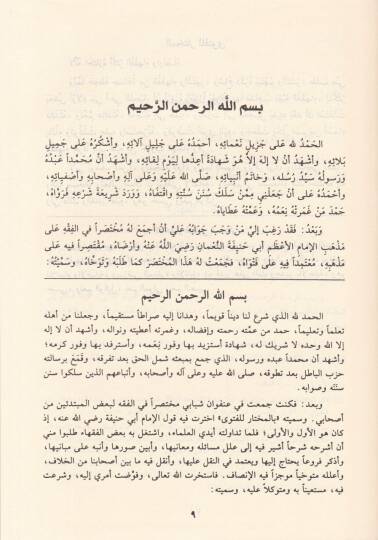 بسم اللَّه الرحمن الرَّحيم
الحَمْدُ لله عَلى جَزِيلِ نَعْمائِهِ، أحمَدُهُ عَلى جَليلِ آلائِهِ، وأشْكُرُهُ عَلى جَمِيلِ
بَلائِهِ، وأشهَدُ أنْ لا إلهَ إلاَّ هُوَ شَهادَةً أعِدُّها لِيَوْمِ لِقائِهِ، وأشْهَدُ أنَّ مُحَمَّداً عَبْدُهُ
وَرَسولُهُ سيِّدُ رُسُلِه، وخاتَمُ أنْبِيائِهِ، صَلَّى اللَّه عَلَيْهِ وَعَلى آلِهِ وأصْحابِهِ وأصْفِيائِهِ،
وأحْمَدُهُ على أنْ جَعَلَني مِمَّنْ سَلَكَ سَنَنَ سُنَّتِهِ واقْتَفاهُ، وَوَرَدَ شَرِيعَةَ شَرْعِهِ فَرَوَاهُ،
حَمْدَ مَنْ غَمَرَتْهُ نِعَمُهُ، وَعَمَّتْهُ عَطاياهُ.
وَبَعْدُ: فَقَدْ رَغِبَ إليَّ مَنْ وَجَبَ جَوَابُهُ عَليَّ أنْ أجمَعَ لَهُ مُخْتَصَراً في الفِقْهِ عَلى
مَذْهَبِ الإمامِ الأعْظَمِ أبي حَنِيفَةَ النُّعْمانِ رَضِيَ اللَّهُ عَنْهُ وأرْضَاهُ، مُقْتَصِراً فيهِ عَلَى
مَذْهَبِهِ، مُعْتَمِداً فِيهِ عَلَى فَتْوَاهُ، فَجَمَعْتُ لَهُ هذَا المُخْتَصَرَ كمَا طَلَبَهُ وَتَوَخَّاهُ، وَسَمَّيْتُهُ:
بسم الله الرحمن الرحيم
الحمد لله الذي شرع لنا ديناً قويماً، وهدانا إليه صراطاً مستقيماً، وجعلنا من أهله
تعلماً وتعليماً، حمد من عمَّته رحمته وإفضاله، وغمرته أعطيته ونواله، وأشهد أن لا إله
إلا الله وحده لا شريك له، شهادة أستزيد بها وفور نِعَمه، وأسترفد بها وفور كرمه؛
وأشهد أن محمداً عبده ورسوله، الذي جمع بمبعثه شمل الحق بعد تفرقه، وقَمَع برسالته
حزب الباطل بعد تطوقه، صلى الله عليه وعلى آله وأصحابه، وأتباعهم الذين سلكوا سنن
سنته وصوابه.
وبعد: فكنت جمعت في عنفوان شبابي مختصراً في الفقه لبعض المبتدئين من
أصحابي. وسميته «بالمختار للفتوى» اخترت فيه قول الإمام أبي حنيفة رضي الله عنه، إذ
كان هو الأول والأولى؛ فلما تداولته أيدي العلماء، واشتغل به بعض الفقهاء طلبوا مني
أن أشرحه شرحاً أشير فيه إلى علل مسائله ومعانيها، وأبين صورها وأنبه على مبانيها،
وأذكر فروعاً يحتاج إليها ويعتمد في النقل عليها، وأنقل فيه ما بين أصحابنا من الخلاف،
وأعلله متوخياً موجزاً فيه الإنصاف. فاستخرت الله تعالى، وفوَّضت أمري إليه، وشرعت
فيه، مستعيناً به ومتوكلاً عليه، وسميته:
٩